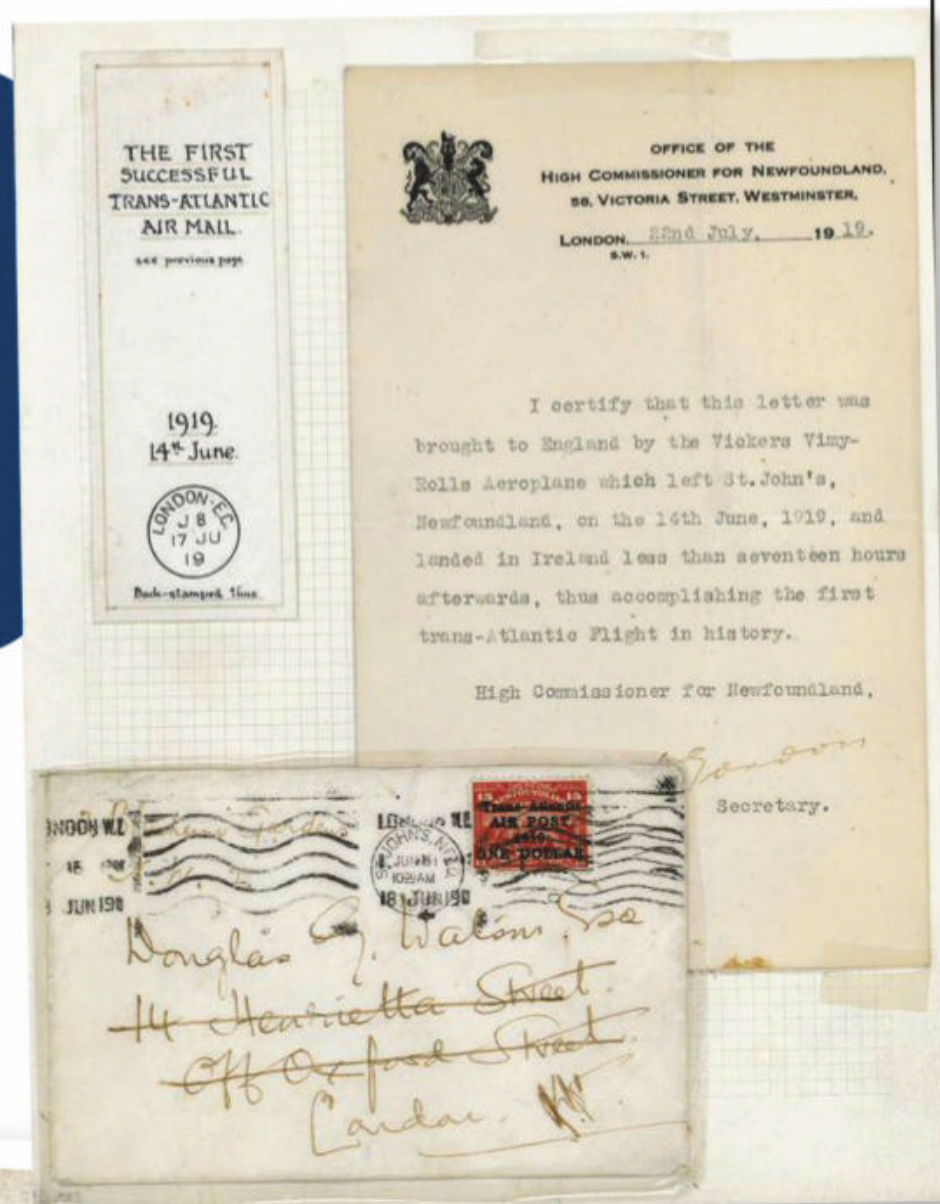 THE FIRST
SUCCESSFUL
TRANS-ATLANTIC
AIR MAIL.
see previous page
1919.
14th June.
LONDON·E.C.
J 8
17 JU
19
Back-stamped thus
OFFICE OF THE
HIGH COMMISSIONER FOR NEWFOUNDLAND,
58, VICTORIA STREET, WESTMINSTER,
LONDON, 22nd July, 1919.
S.W. 1.
I certify that this letter was
brought to England by the Vickers Vimy-
Rolls Aeroplane which left St.John's,
Newfoundland, on the 14th June, 1919, and
landed in Ireland less than seventeen hours
afterwards, thus accomplishing the first
trans-Atlantic Flight in history.
High Commissioner for Newfoundland,
Gordon
Secretary.
15 15
Trans-Atlantic
AIR POST
1919.
ONE DOLLAR
ST. JOHN'S, NFLD
JUN
AM
18 JUN 19
JUN 19
Douglas
14 Henrietta Street.
Off Oxford Street.
London. W.